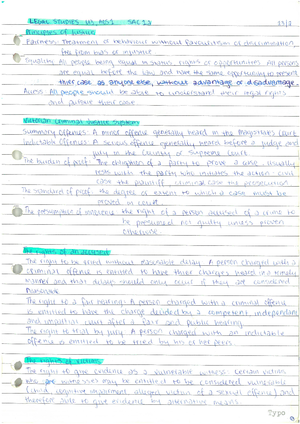 LEGAL STUDIES U3 AOS1 SAC 1
Principles of Justice
Fairness: Treatment or behaviour without favouritism or discrimination,
free from bias or injustice
Equality: All people being equal in status, rights or opportunities. All persons
are equal before the law and have the same opportunity to present
their case as anyone else, without advantage or disadvantage.
Access: All people should be able to understand their legal rights
and pursue their case.
Victorian criminal justice system
Summary offences: A minor offence generally heard in the Magistrates' Court
Indictable offences: A serious offence generally heard before a judge and
jury in the County or Supreme Court
The burden of proof: The obligation of a party to prove a case. Usually
rests with the party who initiates the action - civil
case the plaintiff, criminal case the prosecution
The standard of proof: the degree or extent to which a case must be
proved in court
The presumption of innocence: the right of a person accused of a crime to
be presumed not guilty unless proven
otherwise.
The rights of an accused
The right to be tried without unreasonable delay: A person charged with a
criminal offence is entitled to have their charges heard in a timely
manner and that delays should only occur if they are considered
reasonable
The right to a fair hearing: A person charged with a criminal offence
is entitled to have the charge decided by a competent, independent
and impartial court after a fair and public hearing.
The right to trial by jury: A person charged with an indictable
offence is entitled to be tried by his or her peers
The rights of victims
The right to give evidence as a vulnerable witness: Certain victims
who are witnesses may be entitled to be considered vulnerable
(child, cognitive impairment, alleged victim of a sexual offence) and
therefore able to give evidence by alternative means.